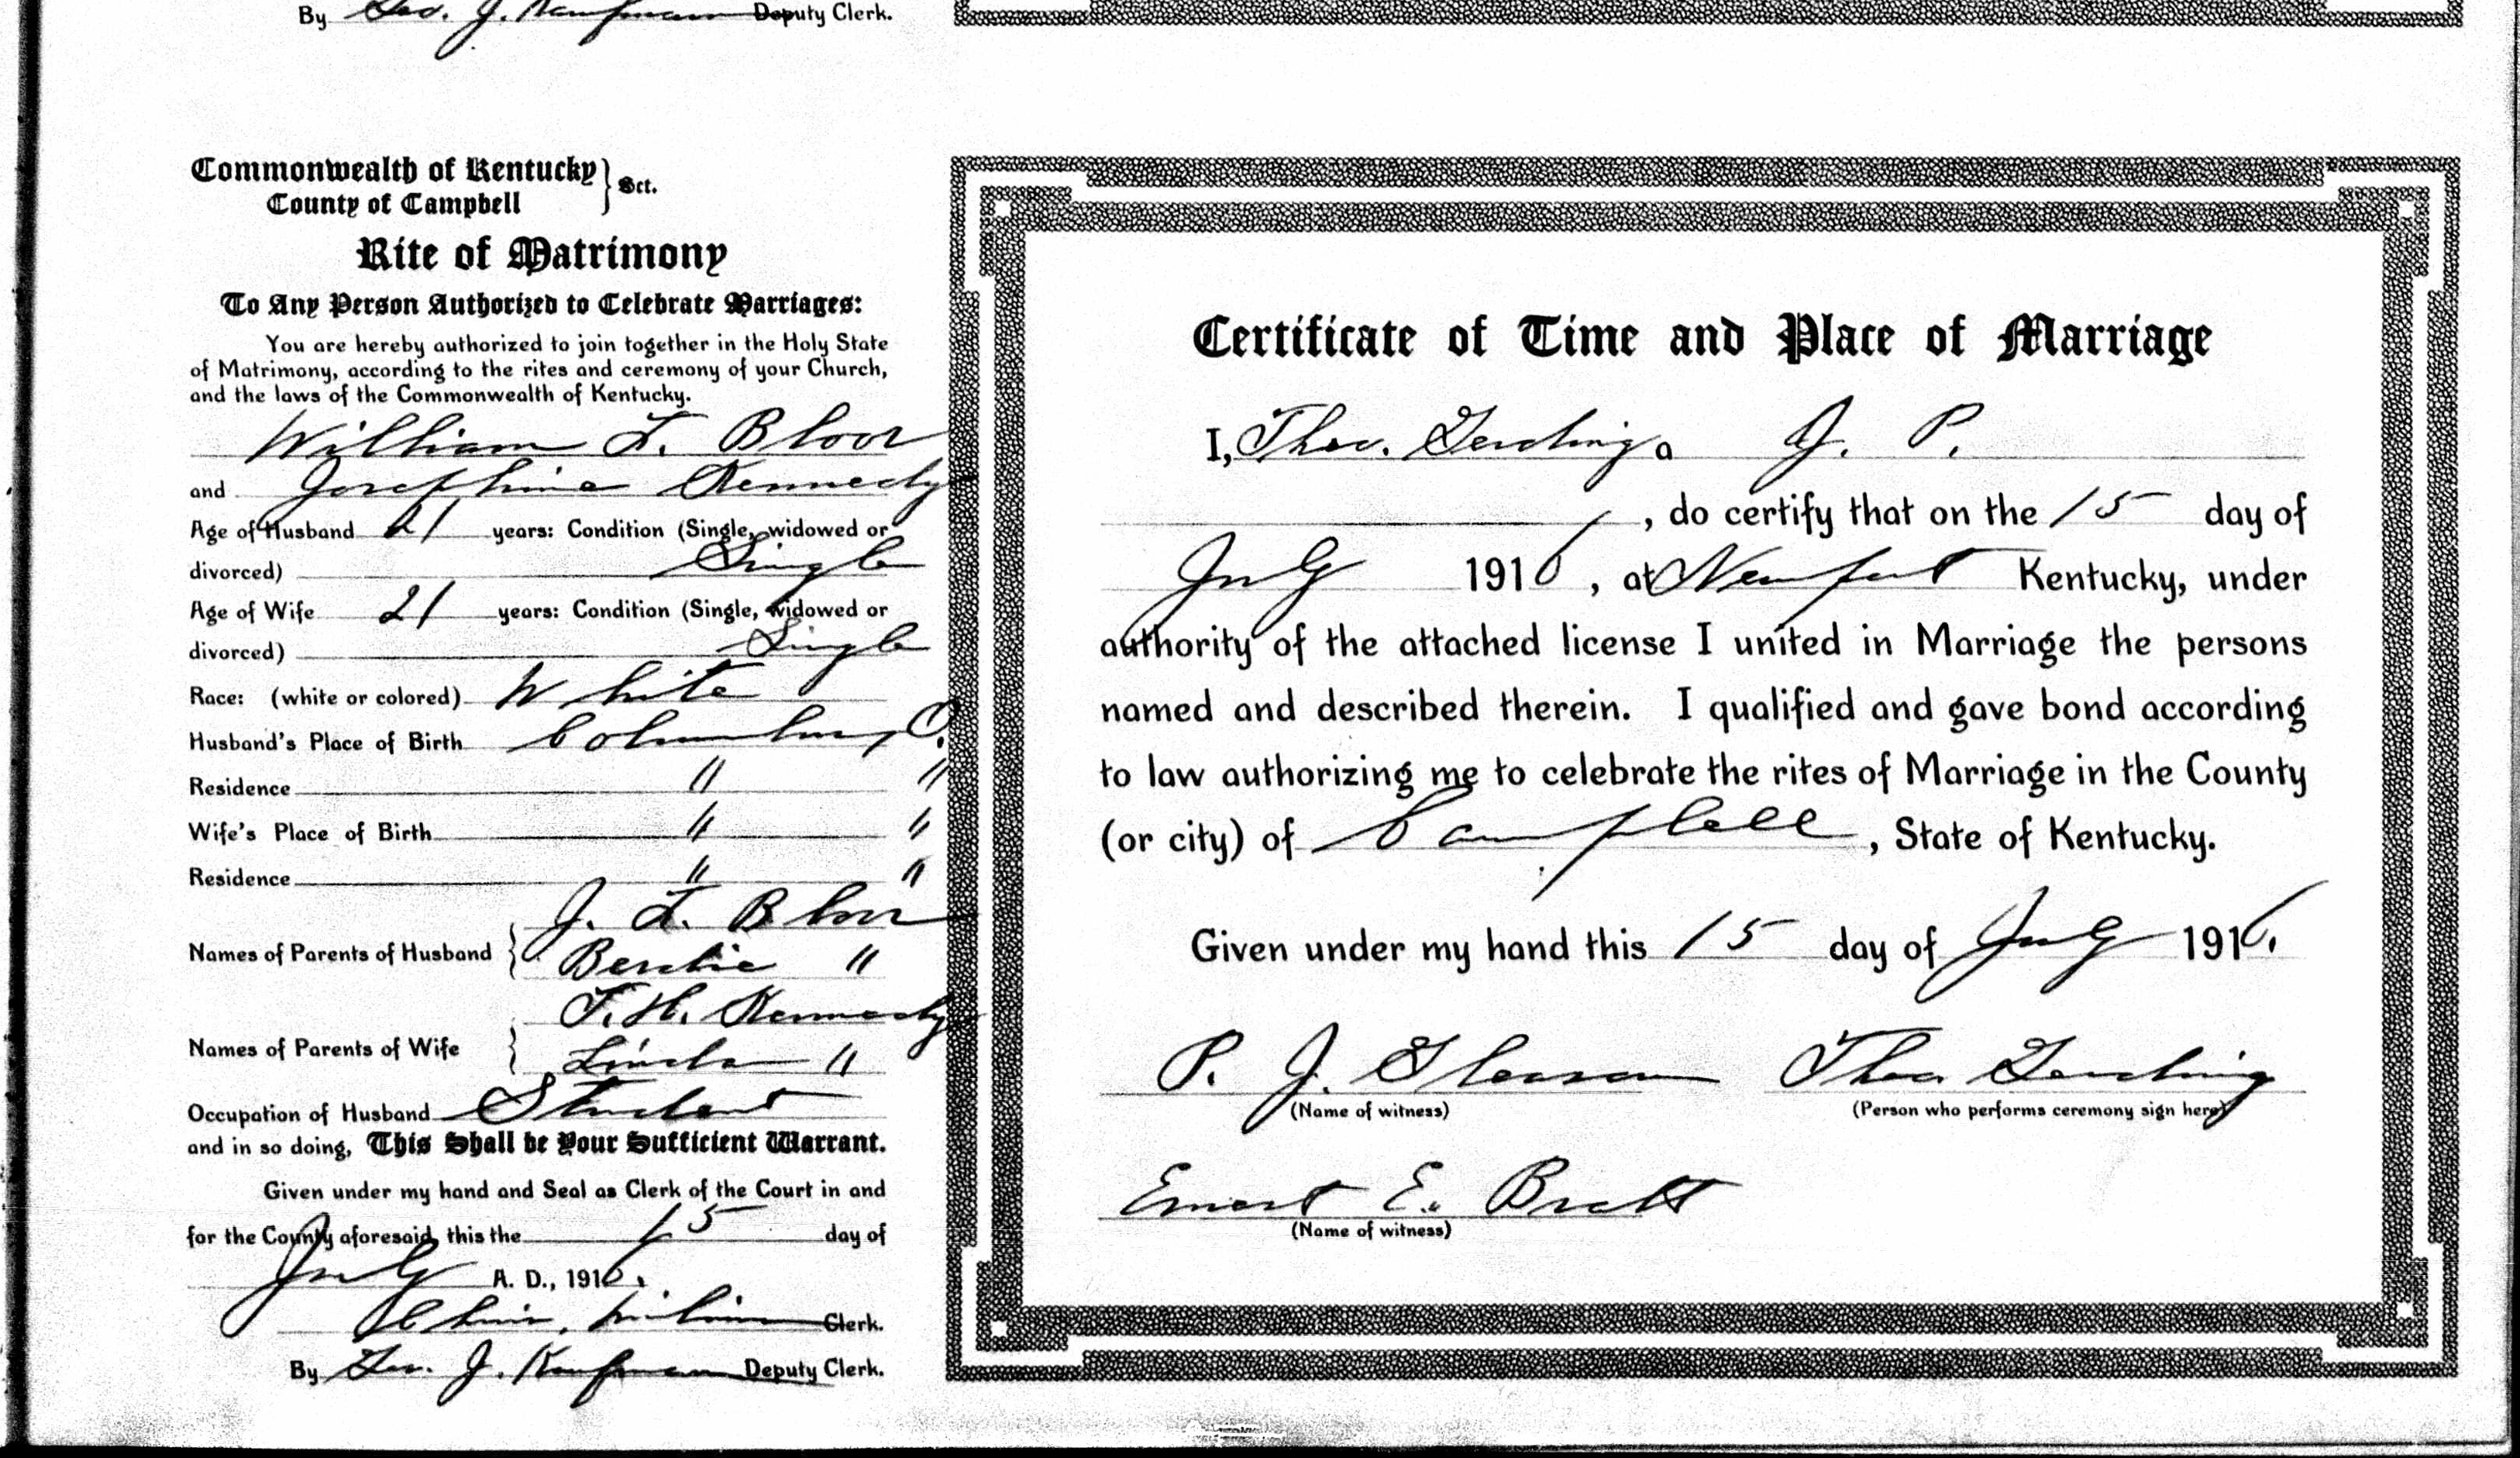 By Geo. J. Kaufmann Deputy Clerk.
Commonwealth of Kentucky } Sct.
County of Campbell
Rite of Matrimony
To Any Person Authorized to Celebrate Marriages:
You are hereby authorized to join together in the Holy State
of Matrimony, according to the rites and ceremony of your Church,
and the laws of the Commonwealth of Kentucky.
William L. Bloor
and Josephine Kennedy
Age of Husband 21 years: Condition (Single, widowed or
divorced) Single
Age of Wife 21 years: Condition (Single, widowed or
divorced) Single
Race: (white or colored) White
Husband's Place of Birth Columbus, O.
Residence " "
Wife's Place of Birth " "
Residence " "
J. L. Bloor
Names of Parents of Husband { Bertie "
T. H. Kennedy
Names of Parents of Wife { Linda "
Occupation of Husband Student
and in so doing, This Shall be Your Sufficient Warrant.
Given under my hand and Seal as Clerk of the Court in and
for the County aforesaid, this the 15 day of
July A. D., 1916.
Clerk.
By Geo. J. Kaufmann Deputy Clerk.
Certificate of Time and Place of Marriage
I, Theo. a J. P.
, do certify that on the 15 day of
July 1916, at Newport Kentucky, under
authority of the attached license I united in Marriage the persons
named and described therein. I qualified and gave bond according
to law authorizing me to celebrate the rites of Marriage in the County
(or city) of Campbell, State of Kentucky.
Given under my hand this 15 day of July 1916.
P. J. Gleason Theo
(Name of witness) (Person who performs ceremony sign here)
Ernest E. Brett
(Name of witness)